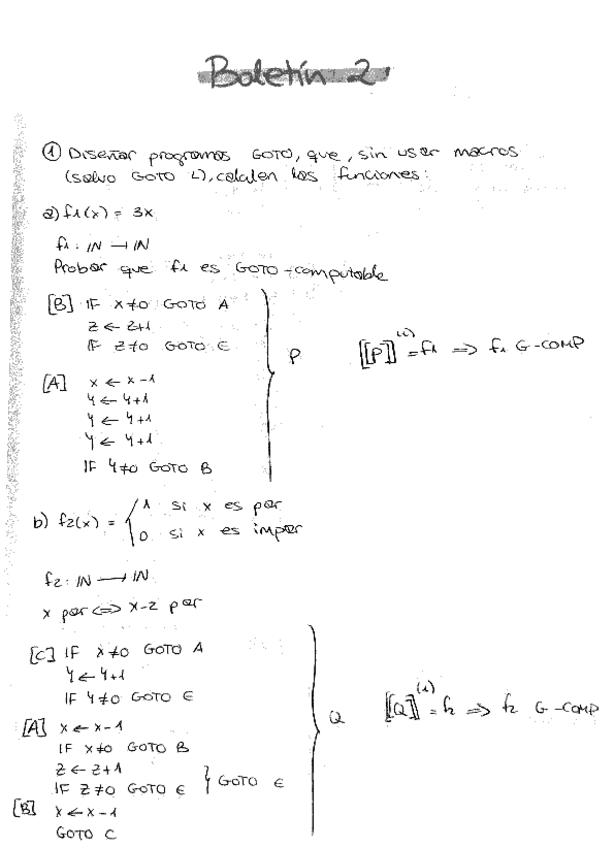 Boletín 2
① Diseñar programas GOTO, que, sin usar macros
(salvo GOTO L), calculen las funciones:
a) f1(x) = 3x
f1 : IN → IN
Probar que f1 es GOTO-computable
[B] IF X≠0 GOTO A
Z ← Z+1
IF Z≠0 GOTO E
[A] X ← X-1
Y ← Y+1
Y ← Y+1
Y ← Y+1
IF Y≠0 GOTO B
P
[[P]]^(1) = f1 ⇒ f1 G-COMP
b) f2(x) = { 1 si x es par
0 si x es impar
f2 : IN → IN
x par ⇔ x-2 par
[C] IF X≠0 GOTO A
Y ← Y+1
IF Y≠0 GOTO E
[A] X ← X-1
IF X≠0 GOTO B
Z ← Z+1
IF Z≠0 GOTO E } GOTO E
[B] X ← X-1
GOTO C
Q
[[Q]]^(1) = f2 ⇒ f2 G-COMP